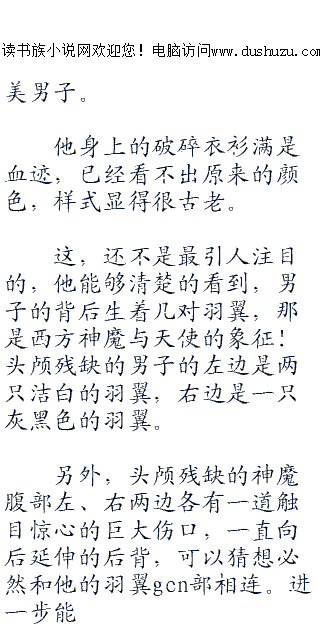 读书族小说网欢迎您！电脑访问www.dushuzu.com
美男子。
他身上的破碎衣衫满是
血迹，已经看不出原来的颜
色，样式显得很古老。
这，还不是最引人注目
的，他能够清楚的看到，男
子的背后生着几对羽翼，那
是西方神魔与天使的象征！
头颅残缺的男子的左边是两
只洁白的羽翼，右边是一只
灰黑色的羽翼。
另外，头颅残缺的神魔
腹部左、右两边各有一道触
目惊心的巨大伤口，一直向
后延伸的后背，可以猜想必
然和他的羽翼gcn部相连。进
一步能